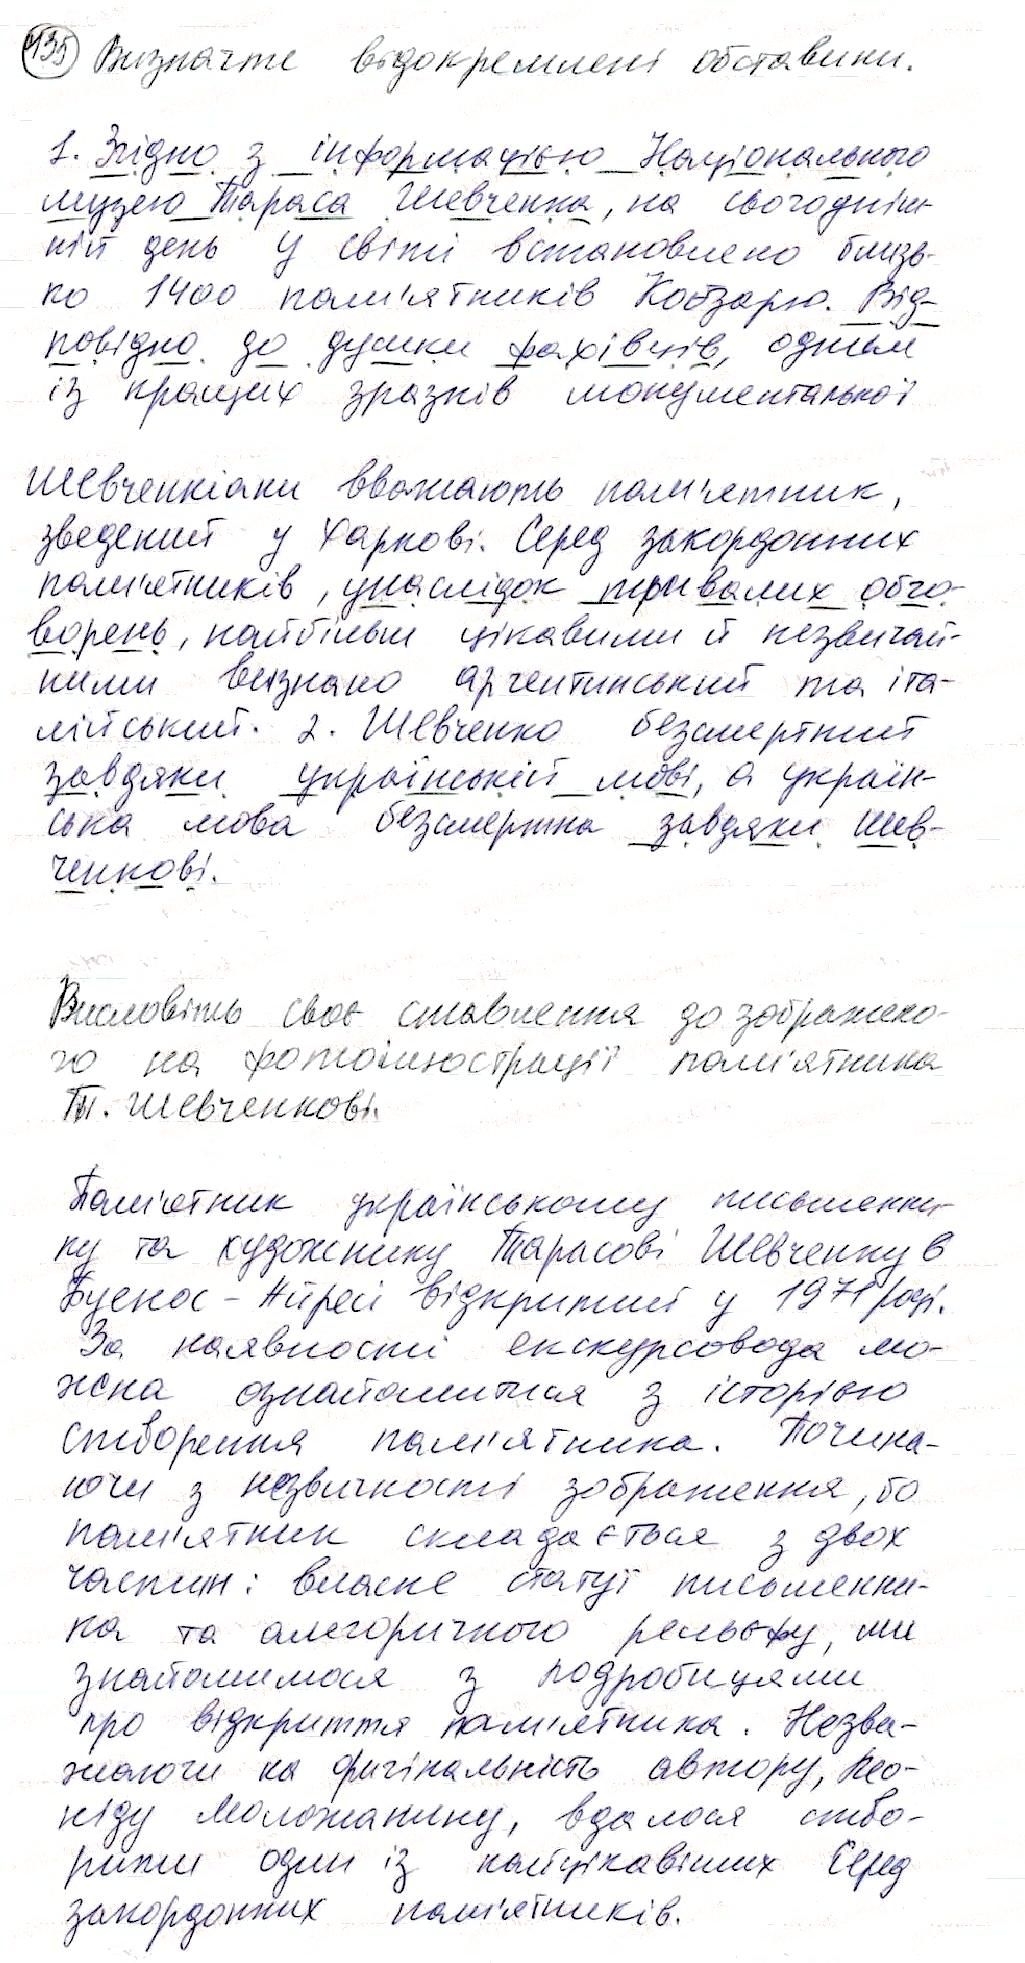 135 Визначте відокремлені обставини.
1. Згідно з інформацією Національного
музею Тараса Шевченка, на сьогодніш-
ній день у світі встановлено близь-
ко 1400 пам'ятників Кобзарю. Від-
повідно до думки фахівців, одним
із кращих зразків монументальної
Шевченкіани вважають пам'ятник,
зведений у Харкові. Серед закордонних
пам'ятників, унаслідок тривалих обго-
ворень, найбільш цікавими й незвичай-
ними визнано аргентинський та іта-
лійський. 2. Шевченко безсмертний
завдяки українській мові, а україн-
ська мова безсмертна завдяки Шев-
ченкові.
Висловіть своє ставлення до зображено-
го на фотоілюстрації пам'ятника
Т. Шевченкові.
Пам'ятник українському письменни-
ку та художнику Тарасові Шевченку в
Буенос-Айресі відкритий у 1971 році.
За наявності екскурсовода мо-
жна ознайомитися з історією
створення пам'ятника. Почина-
ючи з незвичності зображення, бо
пам'ятник складається з двох
частин: власне статуї письменни-
ка та алегоричного рельєфу, ми
знайомимося з подробицями
про відкриття пам'ятника. Незва-
жаючи на оригінальність автору, Лео-
ніду Моложанину, вдалося ство-
рити один із найцікавіших серед
закордонних пам'ятників.